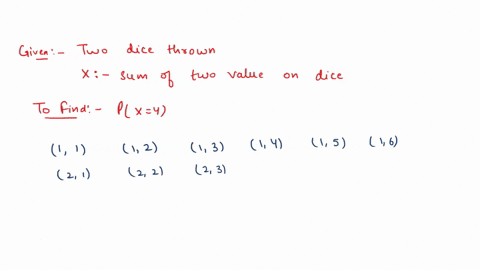 Given:- Two dice thrown
X:- sum of two value on dice
To find:- P( X=4)
(1, 1) (1, 2) (1, 3) (1, 4) (1, 5) (1, 6)
(2, 1) (2, 2) (2, 3)